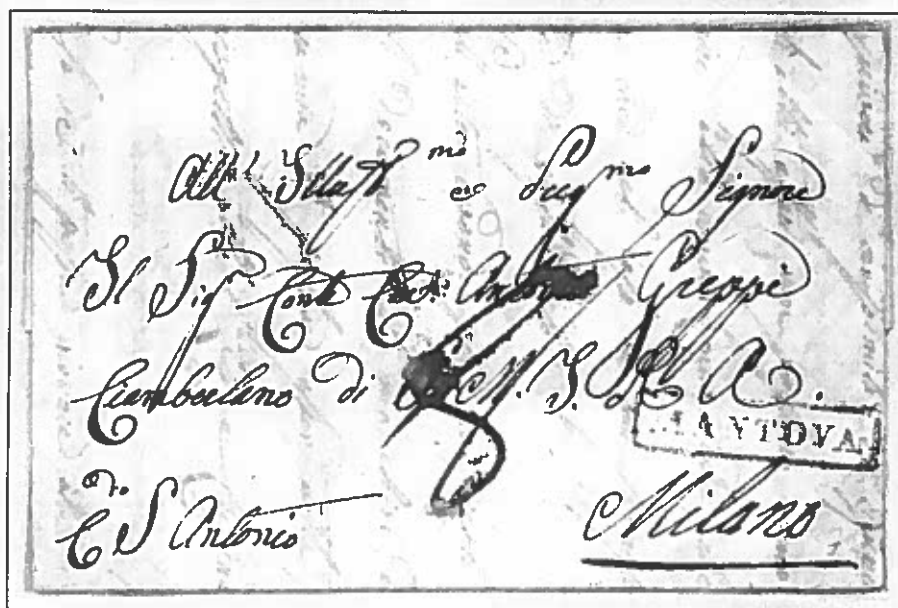 All' Illmo e Preg.mo Signore
Il Sig Conte Cav. Antonio Greppi
Ciamberlano di M. I. R. A.
MANTOVA
C.do S Antonio
Milano